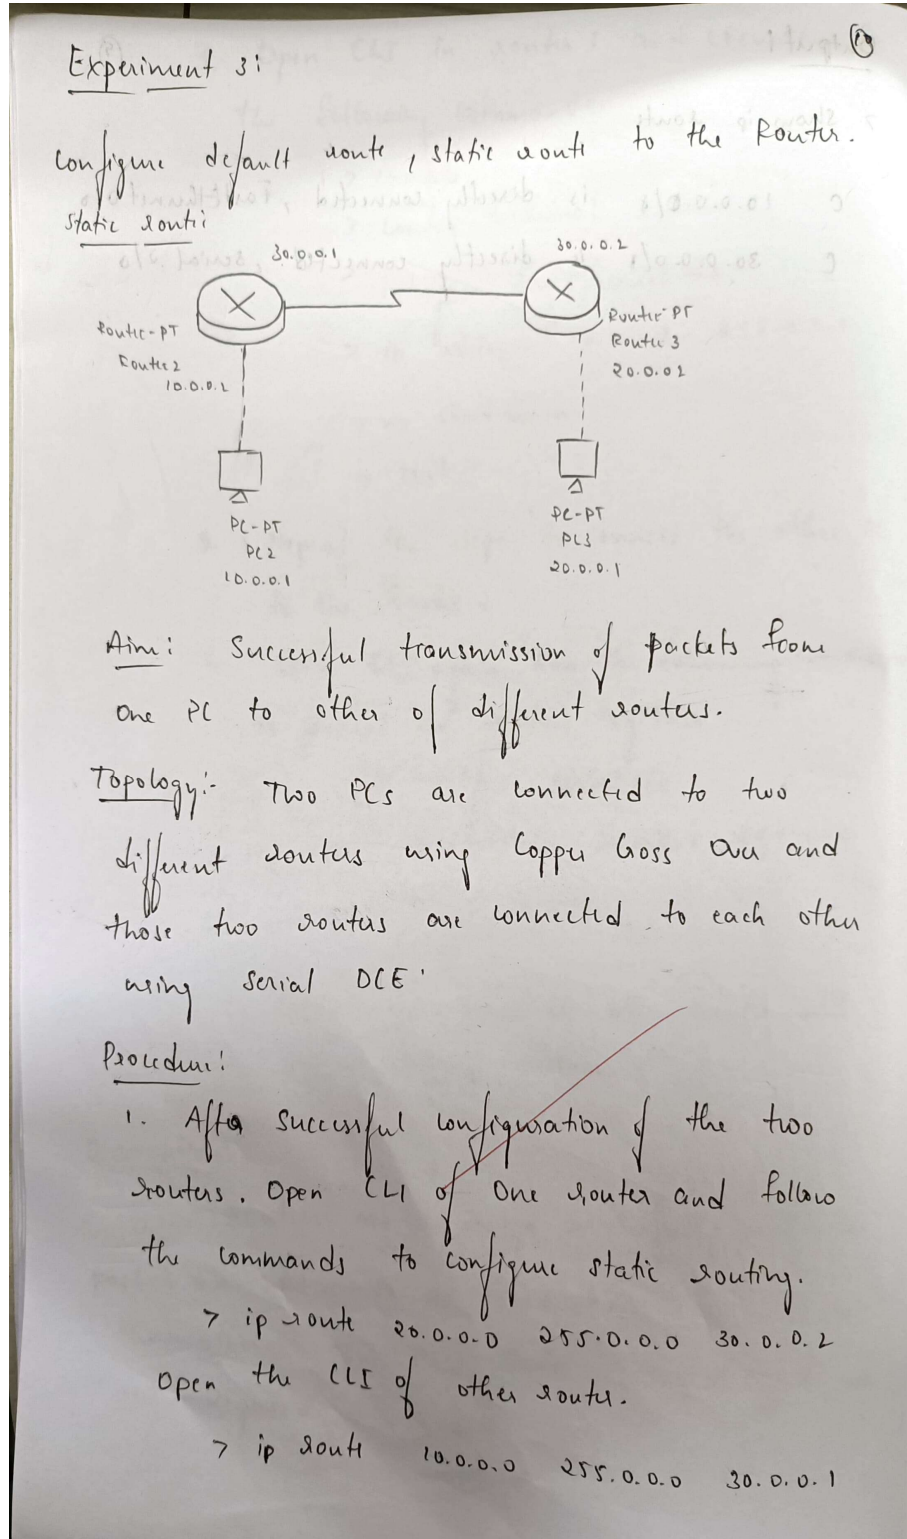 10
Experiment 3:
Configure default route, static route to the Router.
Static route:
30.0.0.1
30.0.0.2
Router-PT
Router 2
10.0.0.2
Router-PT
Router 3
20.0.02
PC-PT
PC2
10.0.0.1
PC-PT
PC3
20.0.0.1
Aim: Successful transmission of packets from
one PC to other of different routers.
Topology:- Two PCs are connected to two
different routers using Copper Cross Over and
those two routers are connected to each other
using Serial DCE.
Procedure:
1. After successful configuration of the two
routers. Open CLI of One router and follow
the commands to configure static routing.
> ip route 20.0.0.0 255.0.0.0 30.0.0.2
Open the CLI of other router.
> ip route 10.0.0.0 255.0.0.0 30.0.0.1